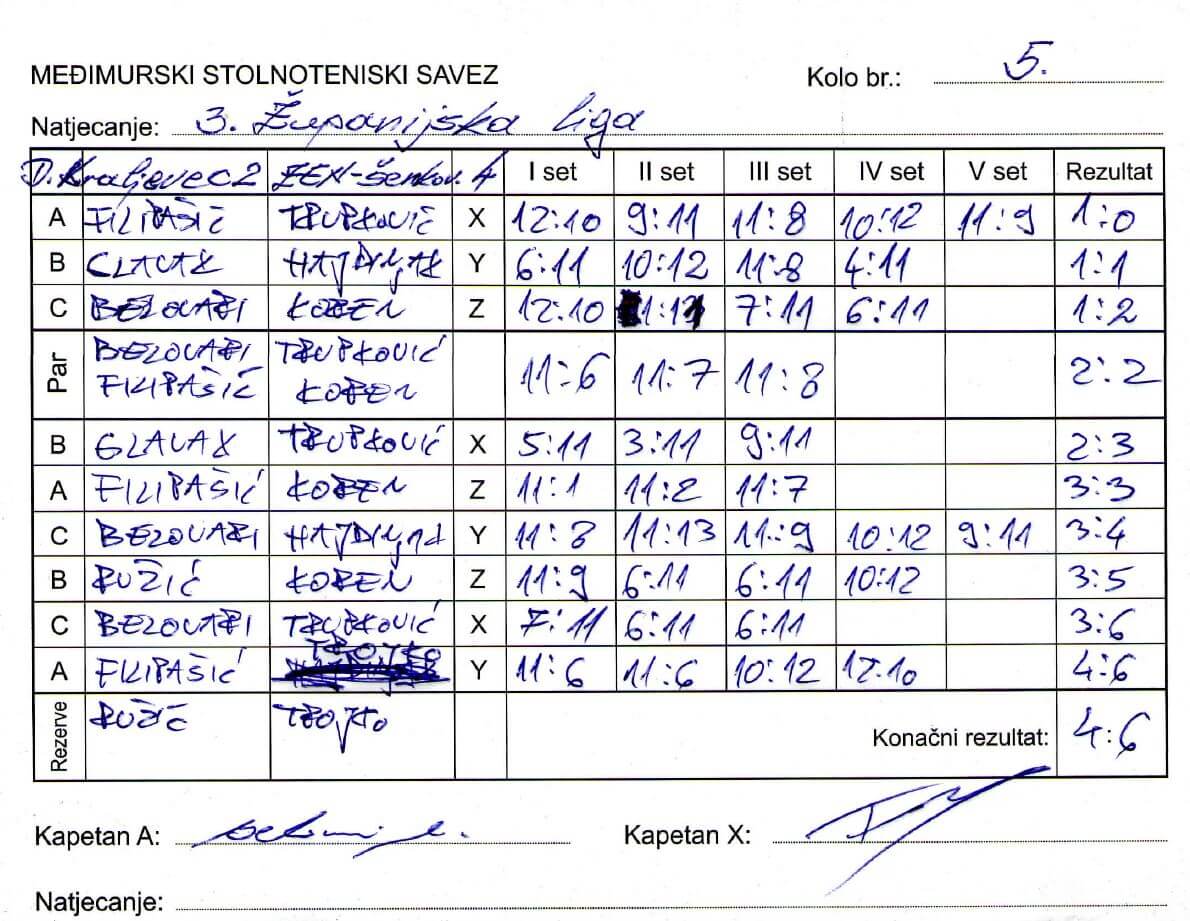 MEĐIMURSKI STOLNOTENISKI SAVEZ
Kolo br.: 5.
Natjecanje: 3. Županijska liga
D. Kraljevec 2 I set II set III set IV set V set Rezultat
A FILIPAŠIĆ TRUPKOVIĆ X 12:10 9:11 11:8 10:12 11:9 1:0
B GLAVAK HAJDINJAK Y 6:11 10:12 11:8 4:11 1:1
C BEZOVARI KOREN Z 12:10 7:11 6:11 1:2
Par BEZOVARI TRUPKOVIĆ
FILIPAŠIĆ KOREN 11:6 11:7 11:8 2:2
B GLAVAK TRUPKOVIĆ X 5:11 3:11 9:11 2:3
A FILIPAŠIĆ KOREN Z 11:1 11:2 11:7 3:3
C BEZOVARI Y 11:8 11:13 11:9 10:12 9:11 3:4
B RUŽIĆ KOREN Z 11:9 6:11 6:11 10:12 3:5
C BEZOVARI TRUPKOVIĆ X 7:11 6:11 6:11 3:6
A FILIPAŠIĆ TROJKO Y 11:6 11:6 10:12 12:10 4:6
Rezerve RUŽIĆ TROJKO Konačni rezultat: 4:6
Kapetan A: Kapetan X:
Natjecanje: